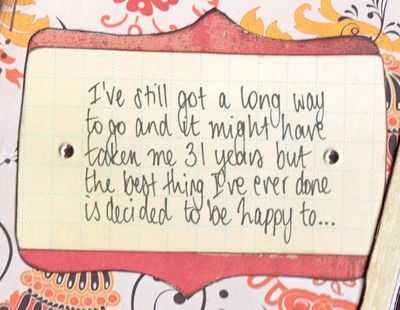 I've still got a long way
to go and it might have
taken me 31 years but
the best thing I've ever done
is decided to be happy to...